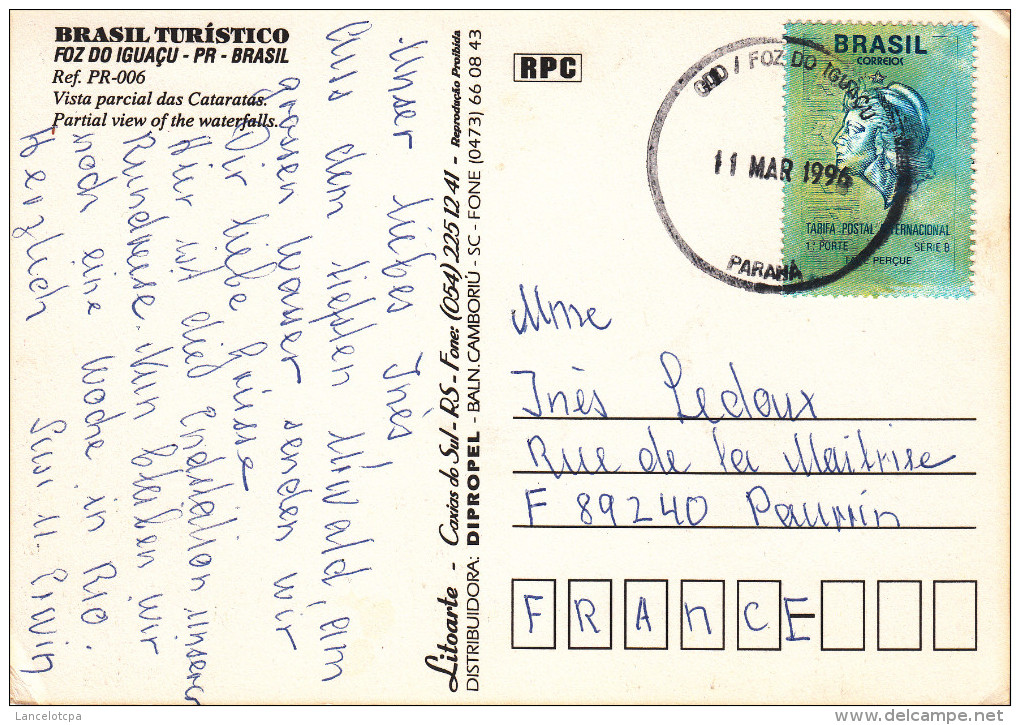 BRASIL TURÍSTICO
FOZ DO IGUAÇU - PR - BRASIL
Ref. PR-006
Vista parcial das Cataratas.
Partial view of the waterfalls.
Unser liebes Inès
Aus dem tiefsten Urwald, am
grossen Wasser senden wir
Dir liebe Grüsse.
Hier ist die Endstation unserer
Rundreise. Nun bleiben wir
noch eine Woche in Rio.
Herzlich Susi u. Erwin
Litoarte - Caxias do Sul - RS - Fone: (054) 225 12 41 - Reprodução Proibida
DISTRIBUIDORA: DIPROPEL - BALN. CAMBORIÚ - SC - FONE (0473) 66 08 43
RPC
FOZ DO IGUAÇU
11 MAR 1996
PARANÁ
BRASIL
CORREIOS
TARIFA POSTAL INTERNACIONAL
1º PORTE SÉRIE B
PERÇUE
Mme
Inès Ledoux
Rue de la Maitrise
F 89240
FRANCE
Lancelotcpa
www.delcampe.net